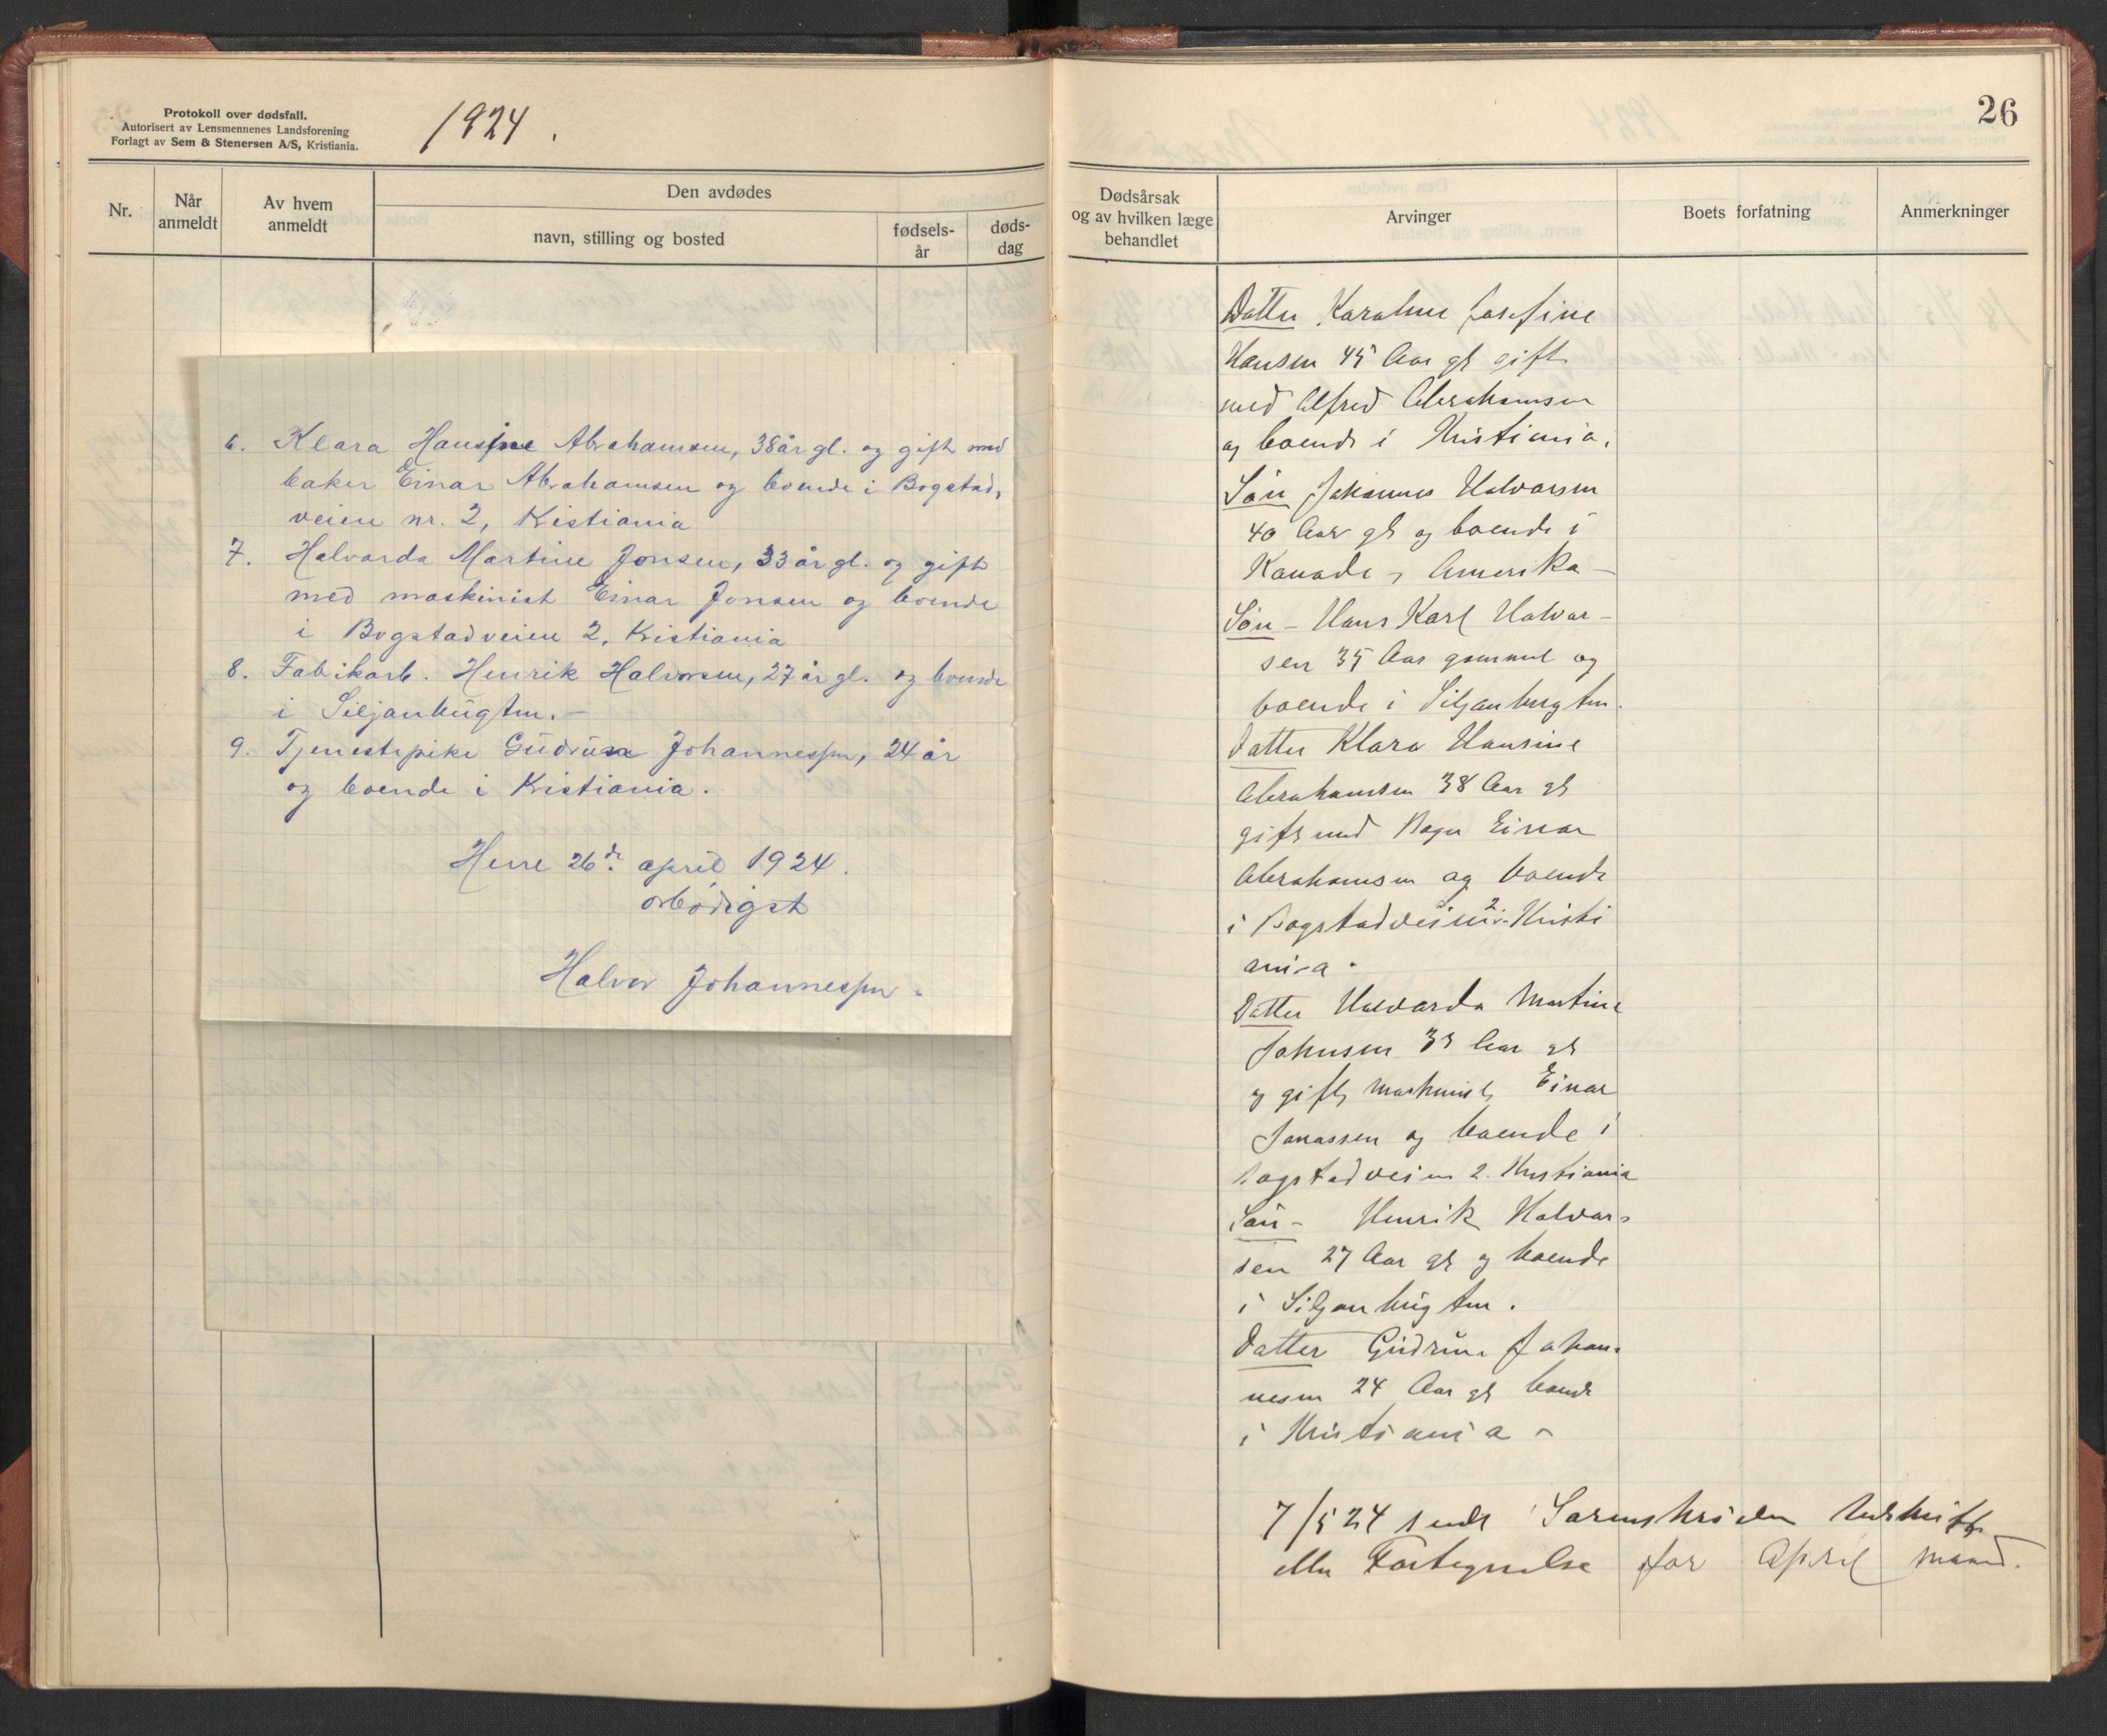 Protokoll over dødsfall.
Autorisert av Lensmennenes Landsforening
Forlagt av Sem & Stenersen A/S, Kristiania.
1924.
Nr.
Når anmeldt
Av hvem anmeldt
Den avdødes
navn, stilling og bosted
fødsels-år
døds-dag
6. Klara Hansine Abrahamsen, 38 år gl. og gift med
baker Einar Abrahamsen og boende i Bogstad-
veien nr. 2, Kistiania
7. Halvarda Martine Jonsen, 33 år gl. og gift
med maskinist Einar Jonsen og boende
i Bogstadveien 2, Kristiania
8. Fabikarb. Henrik Halvorsen, 27 år gl. og boende
i Siljanbugten.-
9. Tjenestepike Gudrun Johannessen, 24 år
og boende i Kristiania.
Herre 26de april 1924.
ærbødigst
Halvor Johannessen.
26
Dødsårsak
og av hvilken læge
behandlet
Arvinger
Boets forfatning
Anmerkninger
Datter Karoline Josefine
Hansen 45 Aar gl gift
med Alfred Abrahamsen
og boende i Kristiania.
Søn Johannes Halvorsen
40 Aar gl og boende i
Kanada, Amerika -
Søn - Hans Karl Halvor-
sen 35 Aar gammel og
boende i Siljanbugten.
Datter Klara Hansine
Abrahamsen 38 Aar gl
gift med Bager Einar
Abrahamsen og boende
i Bogstadveien 2 - Kristi
ania.
Datter Halvarda Martine
Johnsen 33 Aar gl
og gift maskinist Einar
Jonassen og boende i
Bogstadveien 2. Kristiania
Søn - Henrik Halvor-
sen 27 Aar gl og boende
i Siljanbugten.
Datter Gudrun Johan-
nesen 24 Aar gl boende
i Kristiania -
7/5 24 sendt Sorenskriveren Udskrift
eller Fortegnelse for April maaned.